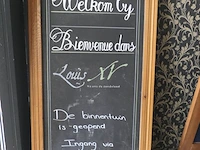 Welkom by
Bienvenue dans
Louis XV
De binnentuin
is geopend
Ingang via